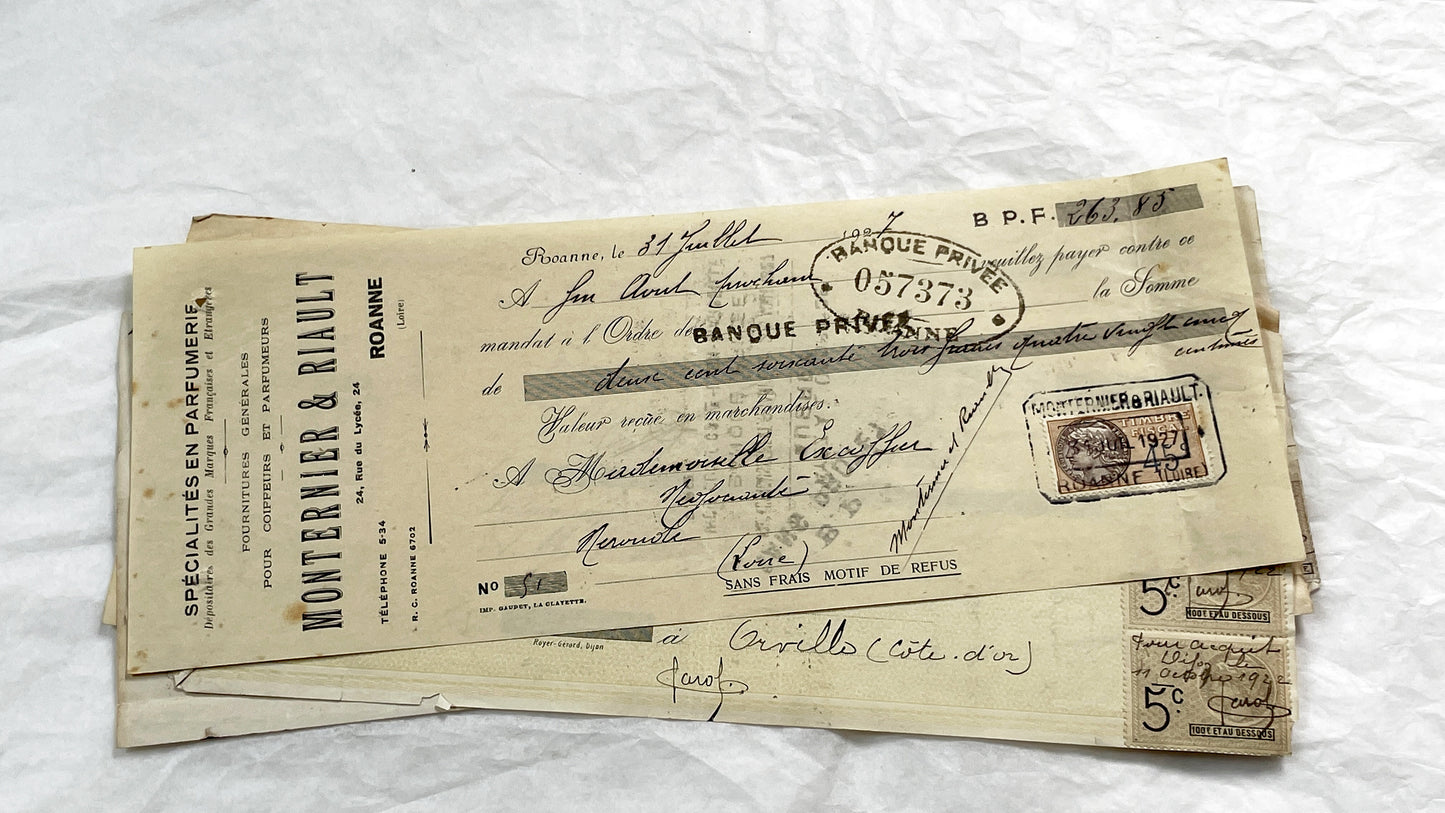 SPÉCIALITÉS EN PARFUMERIE
Dépositaires des Grandes Marques Françaises et Etrangères
FOURNITURES GÉNÉRALES
POUR COIFFEURS ET PARFUMEURS
MONTERNIER & RIAULT
24, Rue du Lycée, 24
ROANNE
(Loire)
TÉLÉPHONE 5-34
R. C. ROANNE 6702
Roanne, le 31 Juillet 1927
B P. F. 263,85
A fin Août prochain veuillez payer contre ce
mandat à l'Ordre de BANQUE PRIVÉE la Somme
BANQUE PRIVÉE
057373
ROANNE
de deux cent soixante trois francs quatre vingt cinq
centimes
Valeur reçue en marchandises.
A Mademoiselle Excoffier
Négociante
Néronde
(Loire)
Monternier et Riault
MONTERNIER & RIAULT
TIMBRE
FISCAL
JUIL 1927
45c
ROANNE (LOIRE)
No 51
SANS FRAIS MOTIF DE REFUS
IMP. GAUDET, LA CLAYETTE.
Royer-Gérard, Dijon
à Orville (Côte-d'or)
Jarof.
5c.
100F ET AU DESSOUS
Pour acquit
Dijon le
11 Octobre 1922
Jarof
5c.
100F ET AU DESSOUS